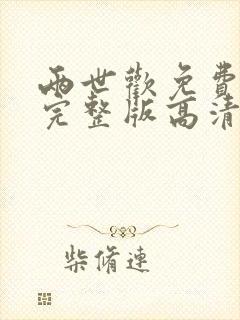 两世歡免費
完整版高清
柴脩連